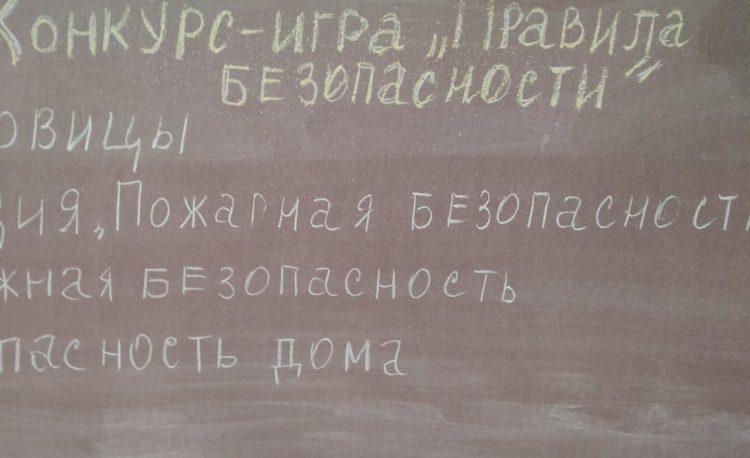 Конкурс-игра „Правила
безопасности"
овицы
ция „Пожарная безопасность
жная безопасность
пасность дома